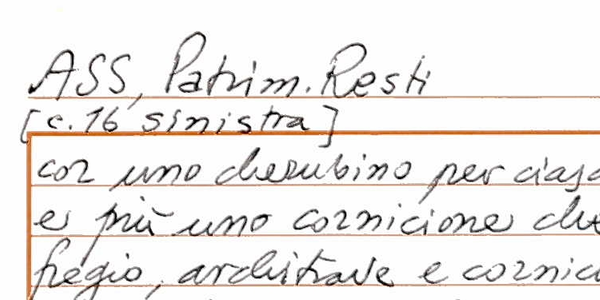 ASS, Patrim. Resti
[c. 16 sinistra]
con uno cherubino per
e più uno cornicione che
fregio, architrave e